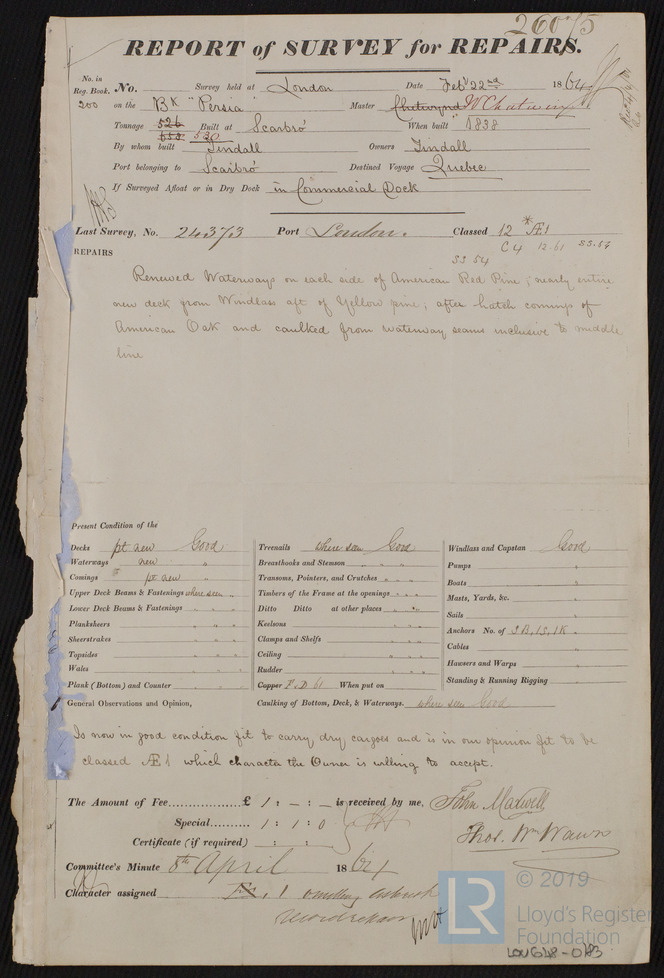 26075
REPORT of SURVEY for REPAIRS.
No. in Reg. Book. No. Survey held at London Date Feby 22nd 1864
200 on the Bk "Persia" Master Chetwynd W Chetwin
Tonnage 526 Built at Scarbro' When built 1838
653 530
By whom built Tindall Owners Tindall
Port belonging to Scarbro' Destined Voyage Quebec
If Surveyed Afloat or in Dry Dock in Commercial Dock
Last Survey, No. 24373 Port London. Classed 12 * Æ1
C4 12.61 SS.59
SS 54
REPAIRS
Renewed Waterways on each side of American Red Pine; nearly entire
new deck from Windlass aft of Yellow pine; after hatch comings of
American Oak and caulked from waterway seams inclusive to middle
line
Present Condition of the
Decks pt new Good
Waterways new "
Comings pt new "
Upper Deck Beams & Fastenings where seen "
Lower Deck Beams & Fastenings " " "
Planksheers " " "
Sheerstrakes " " "
Topsides " " "
Wales " " "
Plank (Bottom) and Counter " " "
Treenails where seen Good
Breasthooks and Stemson " " "
Transoms, Pointers, and Crutches " " "
Timbers of the Frame at the openings " " "
Ditto Ditto at other places " " "
Keelsons " " "
Clamps and Shelfs " " "
Ceiling " " "
Rudder " " "
Copper F.D 61 When put on
Caulking of Bottom, Deck, & Waterways. where seen Good
Windlass and Capstan Good
Pumps "
Boats "
Masts, Yards, &c. "
Sails "
Anchors No. of 3B, 1S, 1K "
Cables "
Hawsers and Warps "
Standing & Running Rigging "
General Observations and Opinion,
Is now in good condition fit to carry dry cargoes and is in our opinion fit to be
classed Æ1 which character the Owner is willing to accept.
The Amount of Fee £ 1 : - : - is received by me, John Maxwell
Special 1 : 1 : 0
Certificate (if required) : :
Thos. Wm Wawn
Committee's Minute 8th April 1864
Character assigned
© 2019
LR
Lloyd's Register
Foundation
LON648-0783